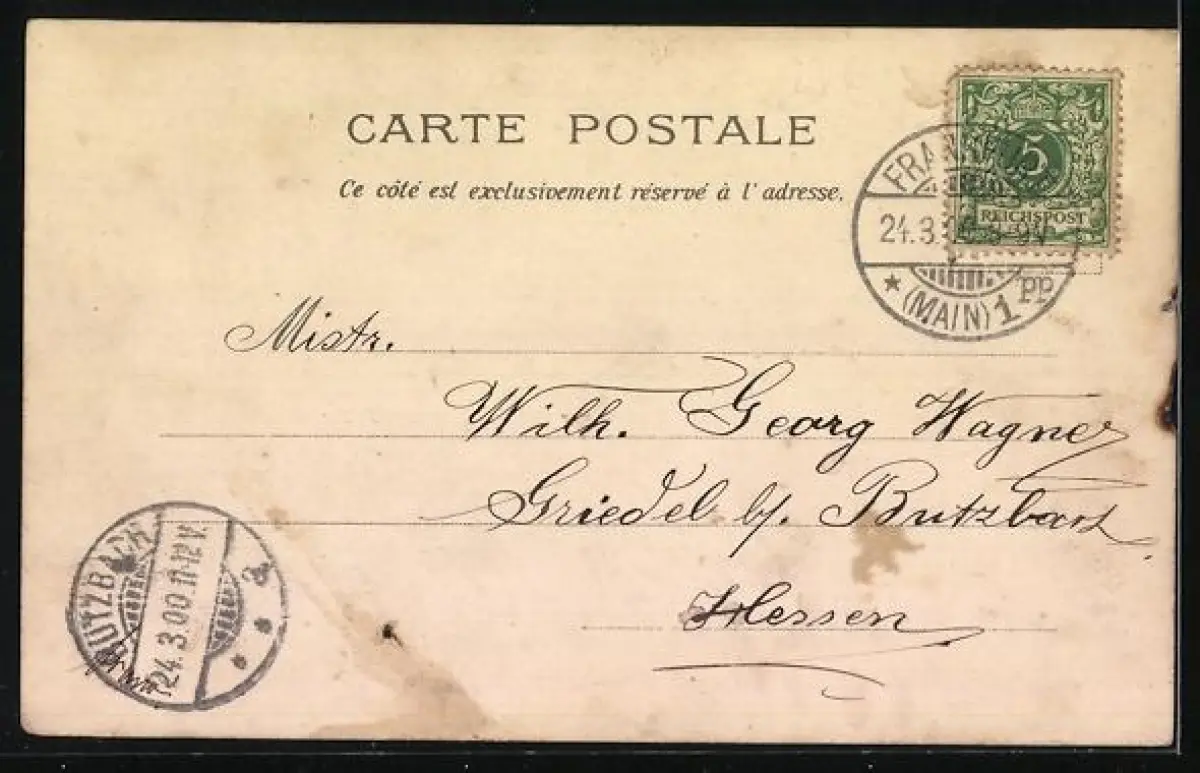 CARTE POSTALE
Ce côté est exclusivement réservé à l'adresse.
5
REICHSPOST
FRANKFURT
24.3. 8-9V.
(MAIN) 1 pp
Mistr.
Wilh. Georg Wagner
Griedel b/. Butzbach
Hessen
BUTZBACH
24.3.00 11-12 V.
a.